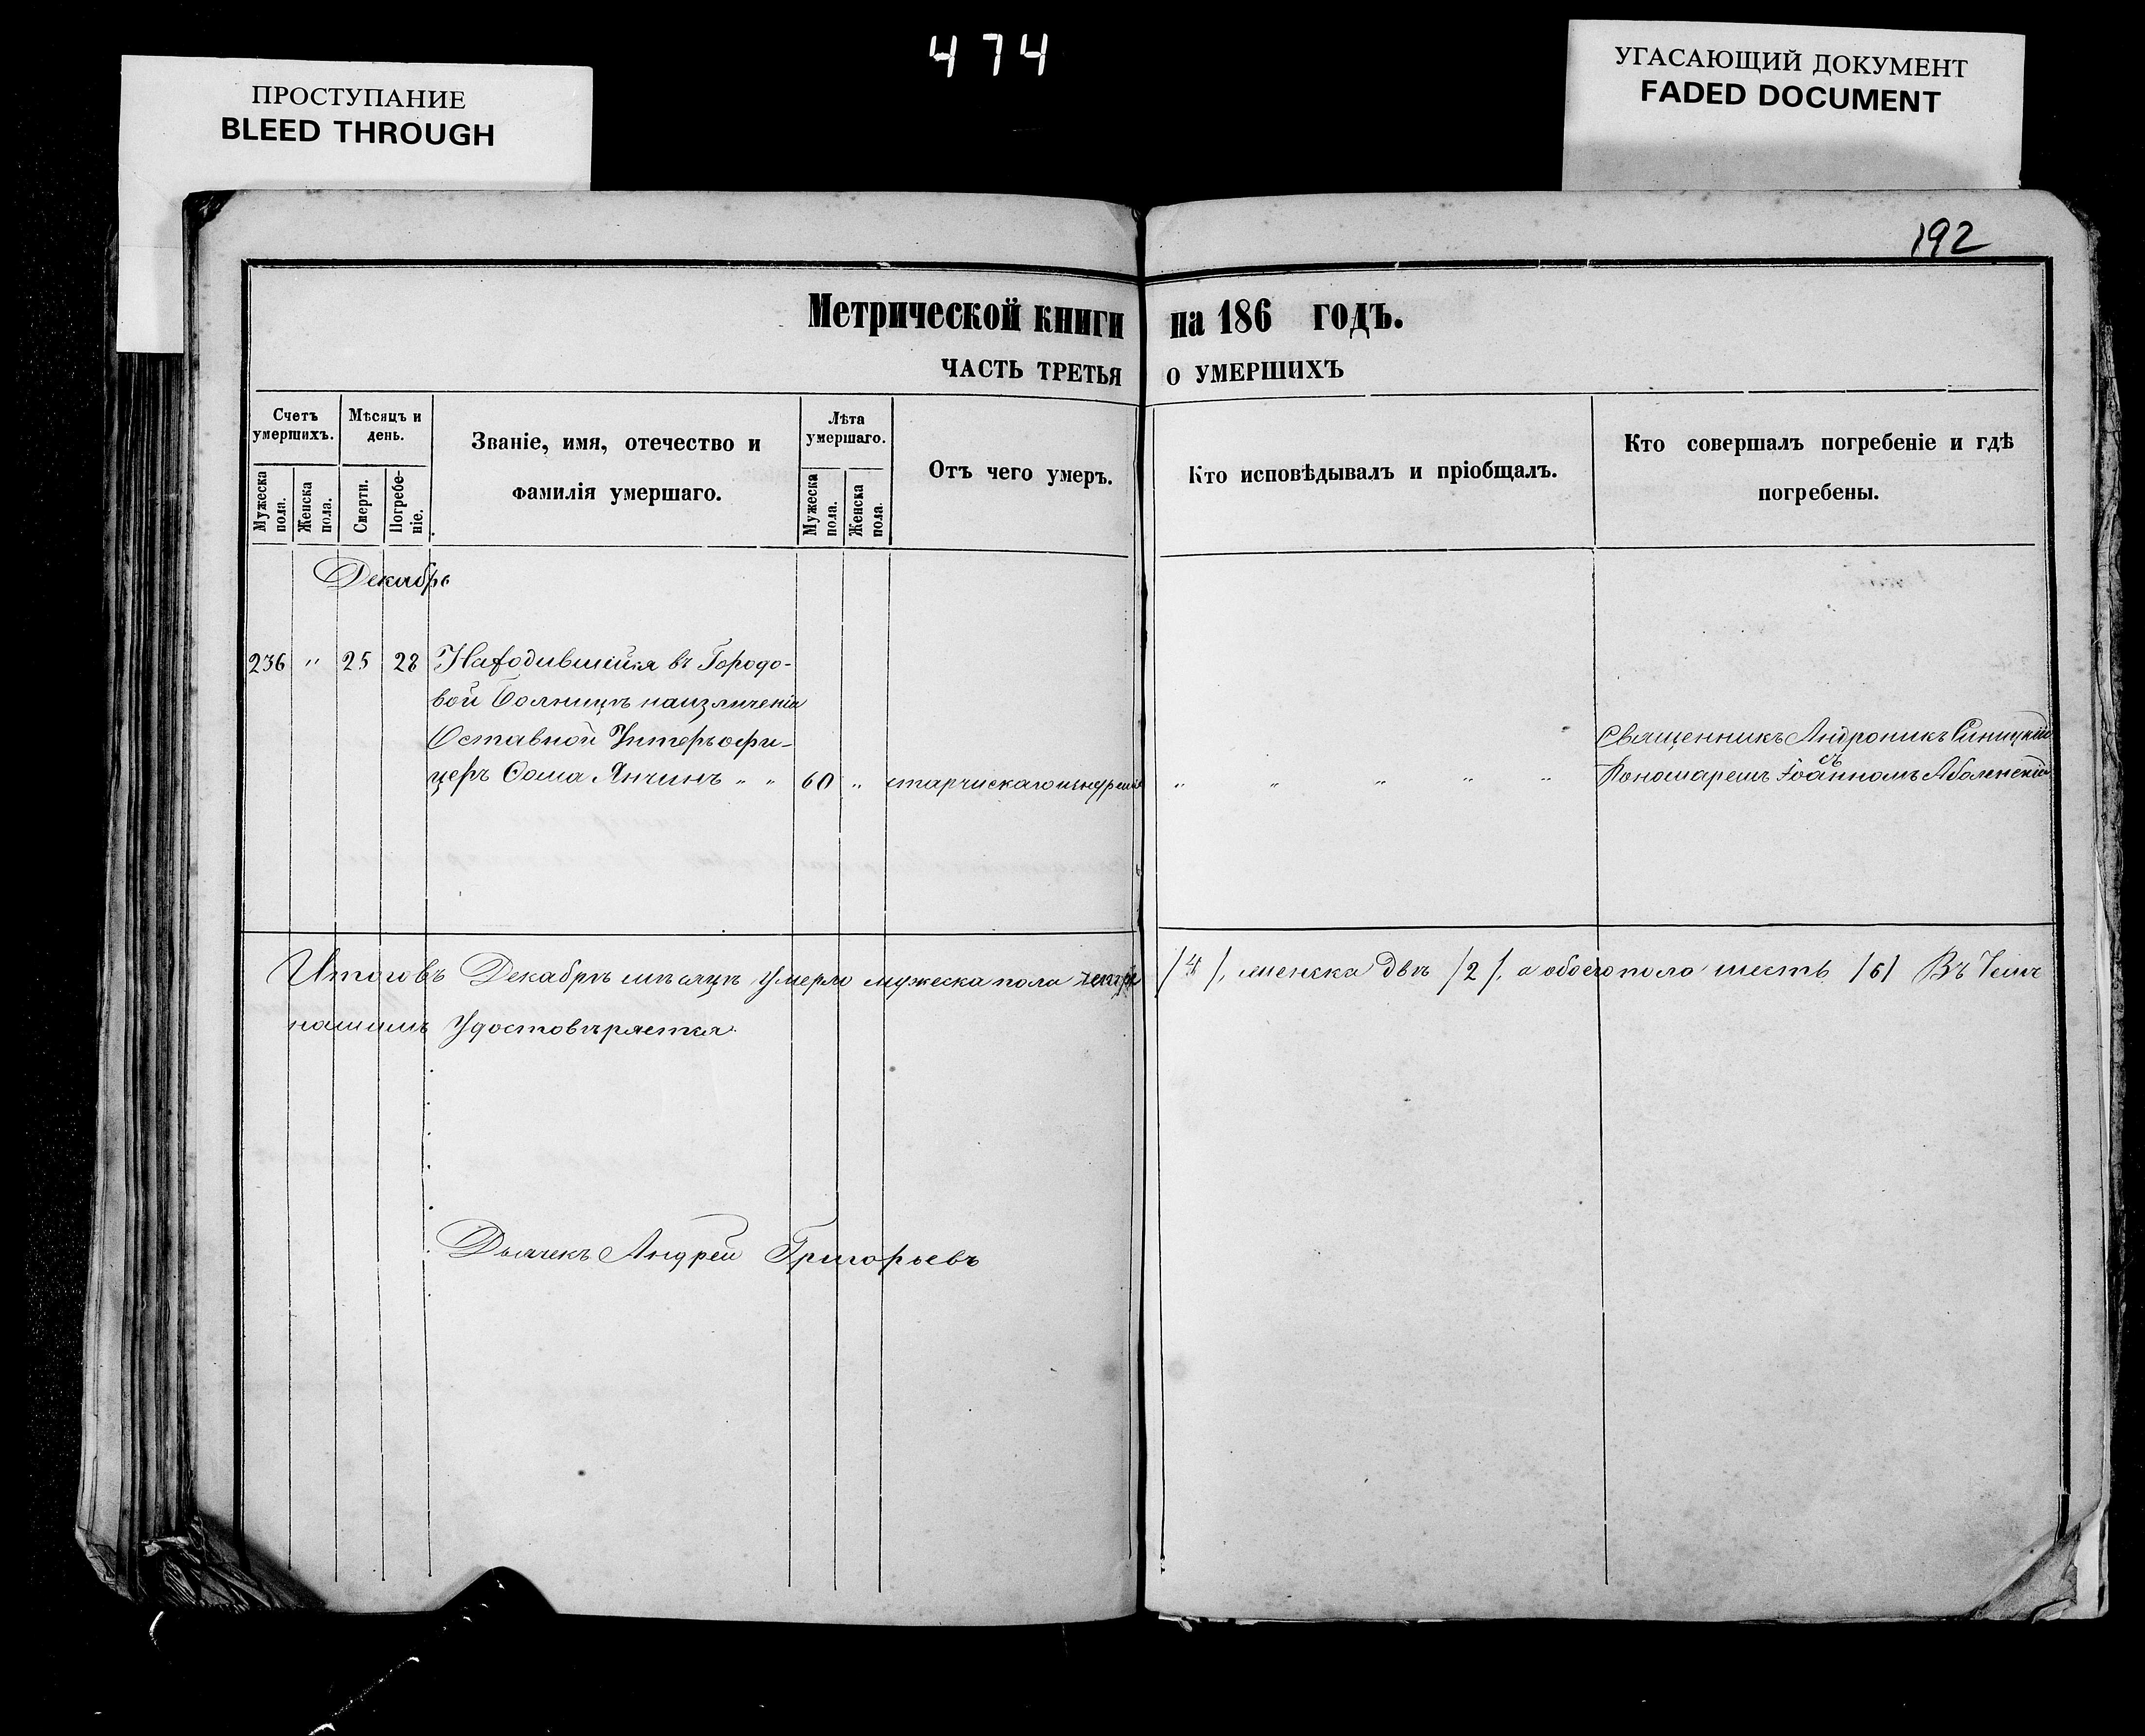 474
ПРОСТУПАНИЕ
BLEED THROUGH
УГАСАЮЩИЙ ДОКУМЕНТ
FADED DOCUMENT
192
Метрической книги на 186 годъ.
ЧАСТЬ ТРЕТЬЯ О УМЕРШИХЪ
Счетъ умершихъ.
Мужеска пола.
Женска пола.
Мѣсяцъ и день.
Смерти.
Погребе-
ніе.
Званіе, имя, отечество и
фамилія умершаго.
Лѣта умершаго.
Мужеска пола.
Женска пола.
Отъ чего умеръ.
Кто исповѣдывалъ и пріобщалъ.
Кто совершалъ погребеніе и гдѣ
погребены.
Декабрь
236 " 25 28 Находившийся въ Городо-
вой Болницѣ наизличеніи
Оставной Унтеръофи-
церъ Ѳома Янчинъ " " 60 "
" " " " "
Священникъ Андроникъ Синицкій
съ
Пономаремъ Іоанномъ Аболенскій
Итого въ Декабрѣ мѣсяцѣ умерло мужеска пола четыре /4/, женска двѣ /2/, а обоего пола шесть /6/ Въ Чемъ
нашимъ Удостовѣряется.
Дьячекъ Андрей Григорьевъ